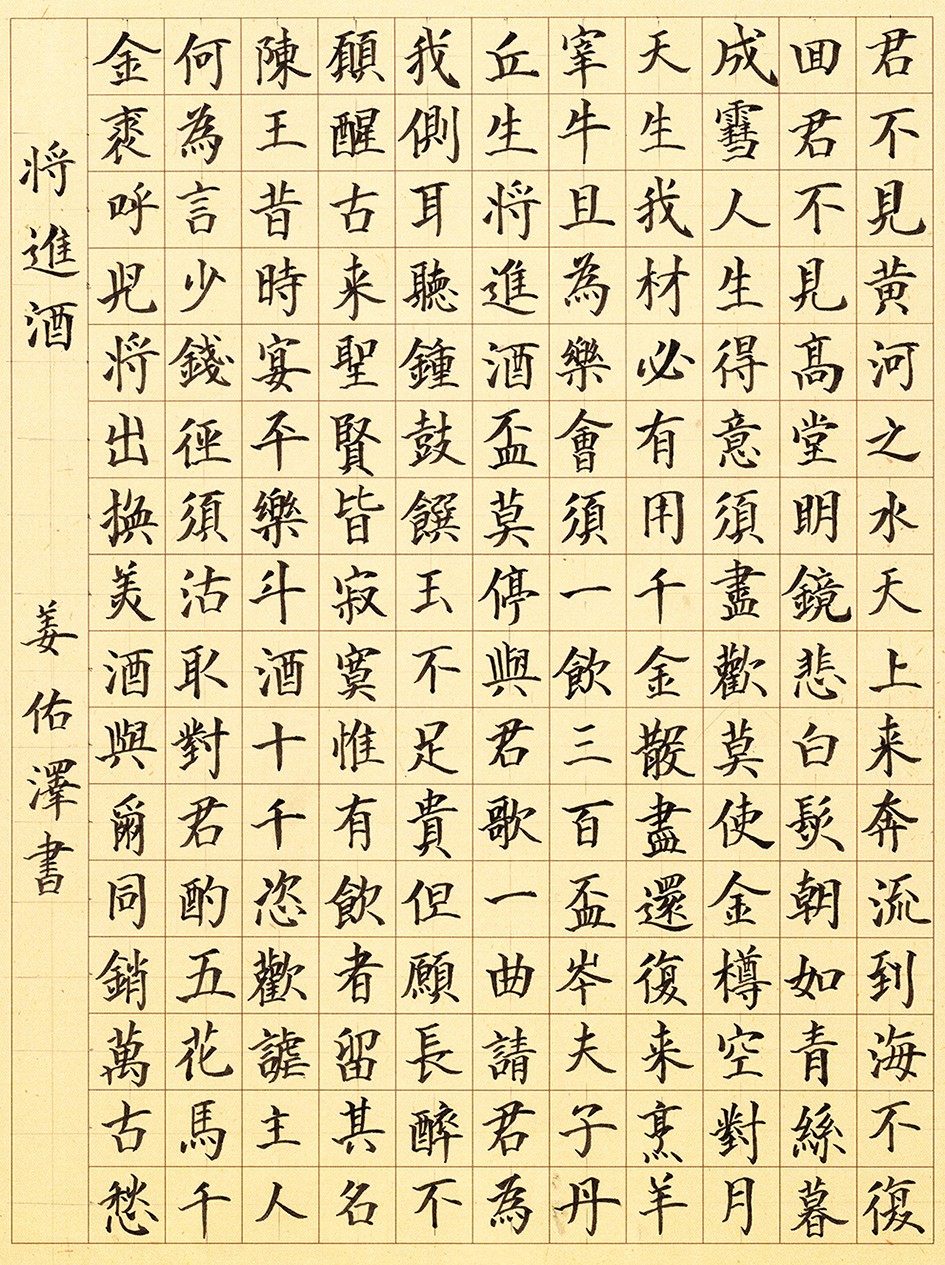 君不見黄河之水天上来奔流到海不復
回君不見髙堂明鏡悲白髮朝如青絲暮
成雪人生得意須盡歡莫使金樽空對月
天生我材必有用千金散盡還復来烹羊
宰牛且為樂會須一飲三百盃岑夫子丹
丘生将進酒盃莫停與君歌一曲請君為
我側耳聽鍾鼓饌玉不足貴但願長醉不
願醒古来聖賢皆寂寞惟有飲者留其名
陳王昔時宴平樂斗酒十千恣歡謔主人
何為言少錢徑須沽取對君酌五花馬千
金裘呼兒将出換美酒與爾同銷萬古愁
将進酒
姜佑澤書